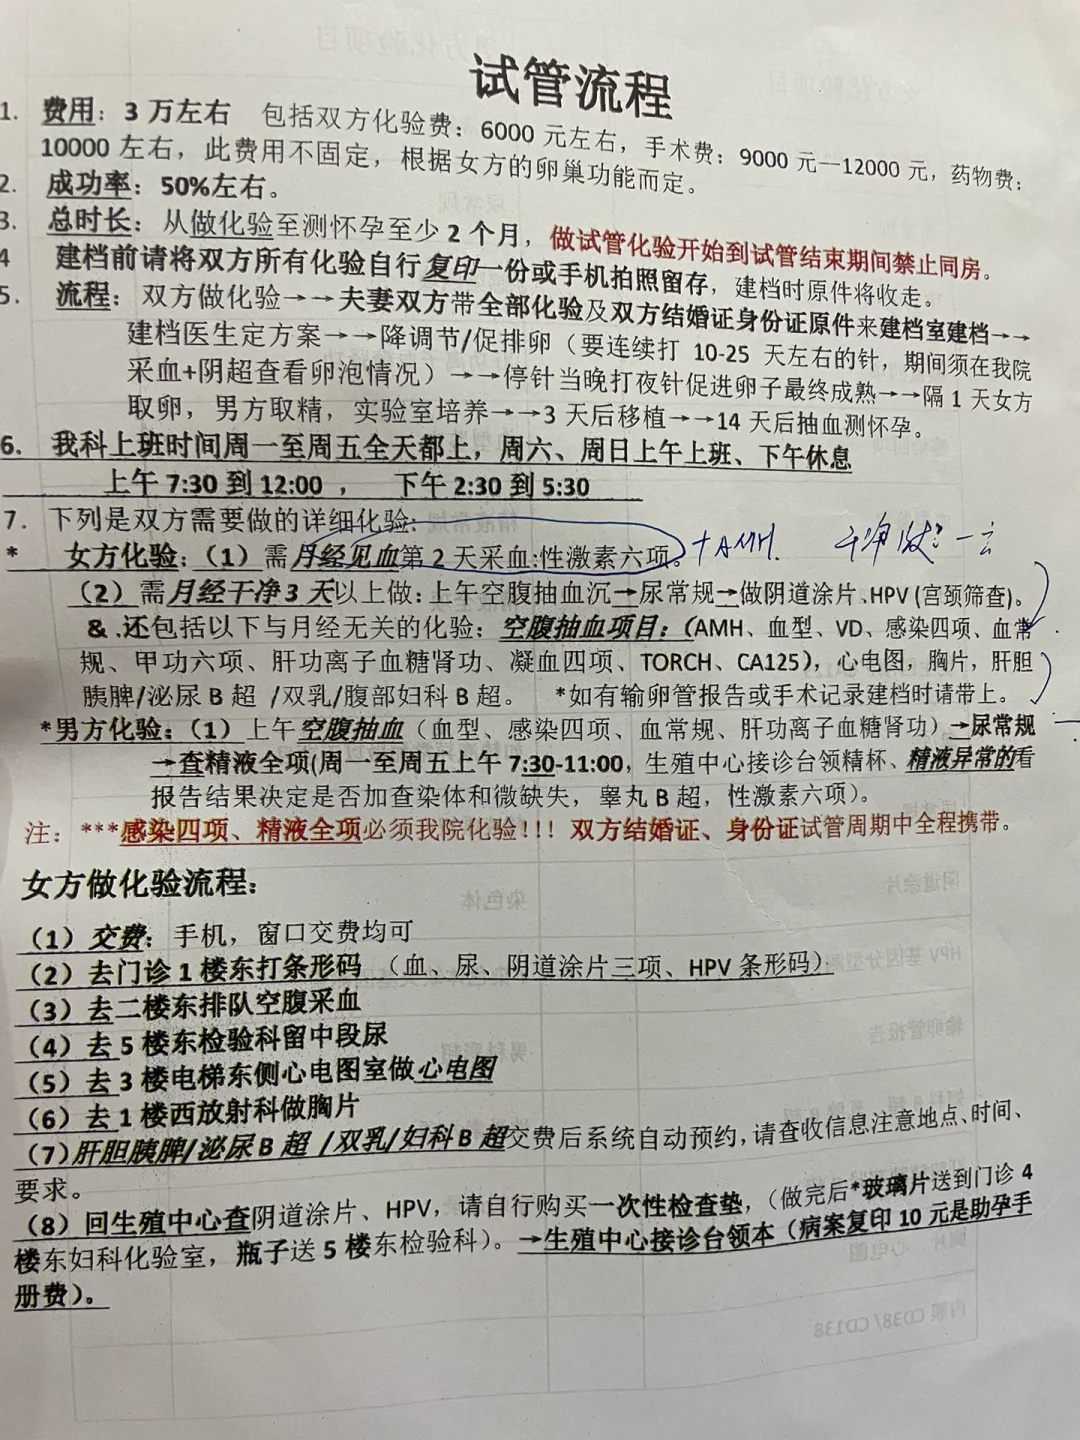 试管流程
1. 费用：3 万左右 包括双方化验费：6000 元左右，手术费：9000 元—12000 元，药物费：
10000 左右，此费用不固定，根据女方的卵巢功能而定。
2. 成功率：50%左右。
3. 总时长：从做化验至测怀孕至少 2 个月，做试管化验开始到试管结束期间禁止同房。
4 建档前请将双方所有化验自行复印一份或手机拍照留存，建档时原件将收走。
5. 流程：双方做化验→→夫妻双方带全部化验及双方结婚证身份证原件来建档室建档→→
建档医生定方案→→降调节/促排卵（要连续打 10-25 天左右的针，期间须在我院
采血+阴超查看卵泡情况）→→停针当晚打夜针促进卵子最终成熟→→隔 1 天女方
取卵，男方取精，实验室培养→→3 天后移植→→14 天后抽血测怀孕。
6. 我科上班时间周一至周五全天都上，周六、周日上午上班、下午休息
上午 7:30 到 12:00 ， 下午 2:30 到 5:30
7. 下列是双方需要做的详细化验：
* 女方化验：（1）需月经见血第 2 天采血:性激素六项。+AMH.
（2）需月经干净 3 天以上做：上午空腹抽血沉→尿常规→做阴道涂片、HPV (宫颈筛查)。
& .还包括以下与月经无关的化验：空腹抽血项目：（AMH、血型、VD、感染四项、血常
规、甲功六项、肝功离子血糖肾功、凝血四项、TORCH、CA125），心电图，胸片，肝胆
胰脾/泌尿 B 超 /双乳/腹部妇科 B 超。 *如有输卵管报告或手术记录建档时请带上。
*男方化验：（1）上午空腹抽血（血型、感染四项、血常规、肝功离子血糖肾功）→尿常规
→查精液全项(周一至周五上午 7:30-11:00，生殖中心接诊台领精杯、精液异常的看
报告结果决定是否加查染色体和微缺失，睾丸 B 超，性激素六项）。
注：***感染四项、精液全项必须我院化验！！！ 双方结婚证、身份证试管周期中全程携带。
女方做化验流程：
（1）交费：手机，窗口交费均可
（2）去门诊 1 楼东打条形码 （血、尿、阴道涂片三项、HPV 条形码）
（3）去二楼东排队空腹采血
（4）去 5 楼东检验科留中段尿
（5）去 3 楼电梯东侧心电图室做心电图
（6）去 1 楼西放射科做胸片
（7）肝胆胰脾/泌尿 B 超 /双乳/妇科 B 超交费后系统自动预约，请查收信息注意地点、时间、
要求。
（8）回生殖中心查阴道涂片、HPV，请自行购买一次性检查垫，（做完后*玻璃片送到门诊 4
楼东妇科化验室，瓶子送 5 楼东检验科）。→生殖中心接诊台领本（病案复印 10 元是助孕手
册费）。